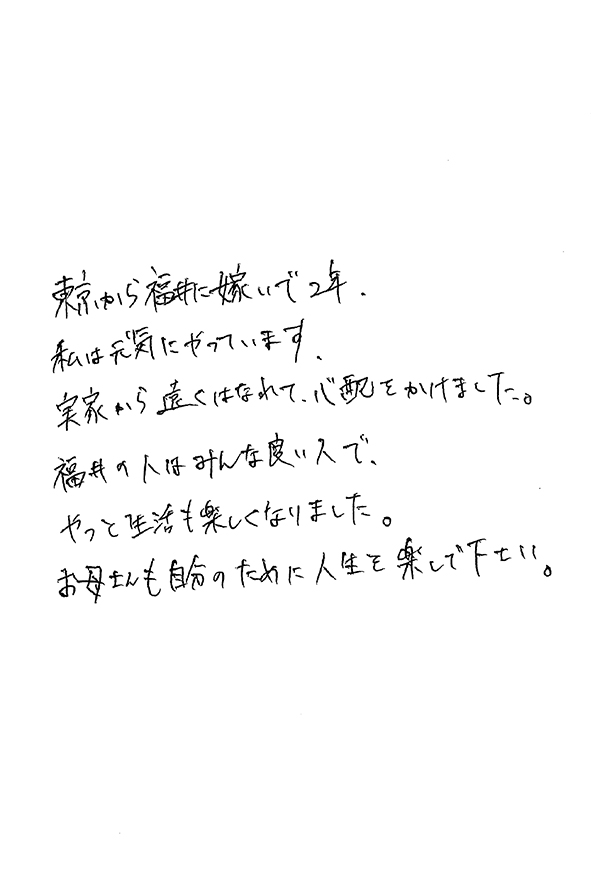 東京から福井に嫁いで2年、
私は元気にやっています、
実家から遠くはなれて、心配をかけました。
福井の人はみんな良い人で、
やっと生活も楽しくなりました。
お母さんも自分のために人生を楽しで下さい。